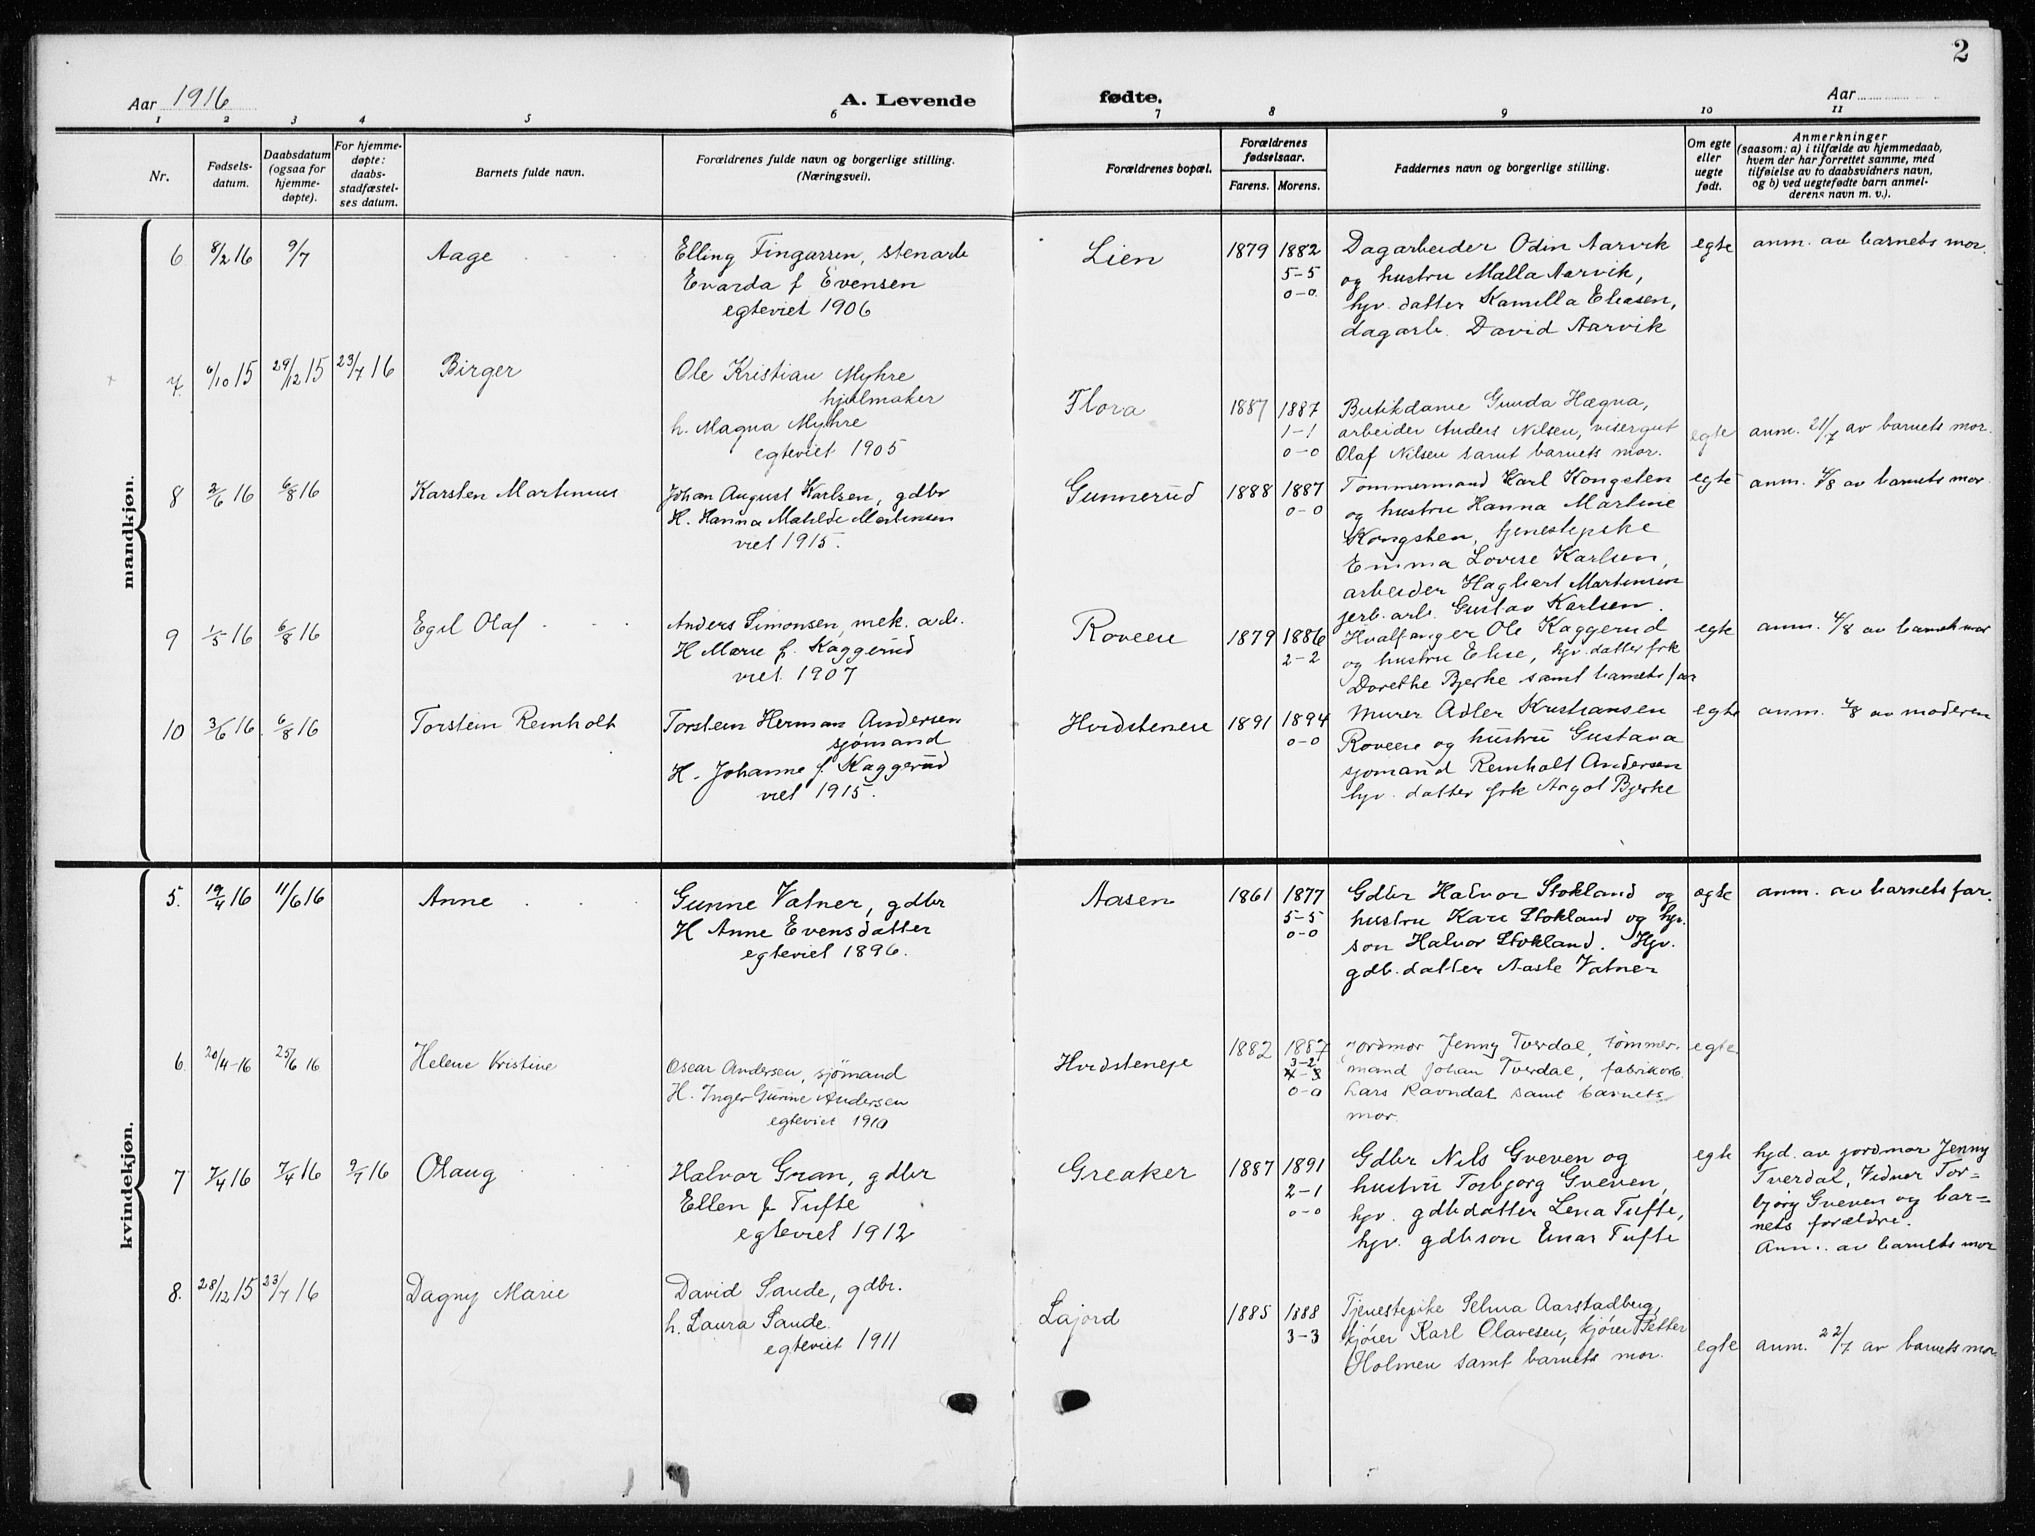 2
Aar 1916
A. Levende
fødte.
Aar
1 2 3 4 5 6 7 8 9 10 11
Nr.
Fødsels-
datum.
Daabsdatum
(ogsaa for
hjemme-
døpte).
For hjemme-
døpte:
daabs-
stadfæstel-
ses datum.
Barnets fulde navn.
Forældrenes fulde navn og borgerlige stilling.
(Næringsvei).
Forældrenes bopæl.
Forældrenes
fødselsaar.
Farens. Morens.
Faddernes navn og borgerlige stilling.
Om egte
eller
uegte
født.
Anmerkninger
(saasom: a) i tilfælde av hjemmedaab,
hvem der har forrettet samme, med
tilføielse av to daabsvidners navn,
og b) ved uegtefødte barn anmel-
derens navn m. v.).
mandkjøn.
6 8/2 16 9/7 Aage
Elling Fingarsen, stenarb
Evarda f Evensen
egteviet 1906
Lien
1879 1882
5-5
0-0
Dagarbeider Odin Aarvik
og hustru Malla Aarvik,
hjv. datter Kamilla Eliasen,
dagarb. David Aarvik
egte
anm. av barnets mor.
7. 6/10 15 29/12 15 23/7 16 Birger
Ole Kristian Myhre
hjulmaker
h. Magna Myhre
egteviet 1905
Flora
1887 1887
1-1
0-0
Butikdame Gunda Hægna,
arbeider Anders Nilsen, visergut
Olaf Nilsen samt barnets mor.
egte
anm. 21/7 av barnets mor.
8 2/6 16 6/8 16 Karsten Martinius
Johan August Karlsen, gdbr
H. Hanna Matilde Martinsen
viet 1915.
Gunnerud
1888 1887
0-0
Tømmermand Karl Kongsten
og hustru Hanna Martine
Kongsten, tjenestepike
Emma Lovise Karlsen,
arbeider Hagbart Martinsen
jerb.arb. Gustav Karlsen.
egte
anm. 4/8 av barnets mor
9 1/5 16 6/8 16 Egil Olaf
Anders Simonsen, mek. arb.
H Marie f. Kaggerud
viet 1907
Roveen
1879 1886
2-2
Hvalfanger Ole Kaggerud
og hustru Elise, hjv. datter frk
Dorethe Bjerke samt barnets far
egte
anm. 4/8 av barnets mor
10 3/6 16 6/8 16 Torstein Reinholt
Torstein Herman Andersen
sjømand
H. Johanne f. Kaggerud
viet 1915.
Hvidsteneie
1891 1894
0-0
Murer Adler Kristiansen
Roveen og hustru Gustava
sjømand Reinholt Andersen
hjv. datter frk Argot Bjerke
egte
anm. 4/8 av moderen
kvindekjøn.
5. 19/4 16 11/6 16 Anne
Gunne Vatner, gdbr
H Anne Evensdatter
egteviet 1896.
Aasen
1861 1877
5-5
0-0
Gdbr Halvor Stokland og
hustru Kari Stokland og hjv.
søn Halvor Stokland. Hjv.
gdb.datter Aaste Vatner
egte
anm. av barnets far.
6. 20/4-16 25/6 16 Helene Kristine
Oscar Andersen, sjømand
H. Inger Gurine Andersen
egteviet 1910
Hvidsteneje
1882 1887
3-2
4-3
0-0
Jordmor Jenny Tverdal, tømmer-
mand Johan Tverdal, fabrikarb.
Lars Ravndal samt barnets
mor.
egte
7 7/4 16 7/4 16 9/7 16 Olaug
Halvor Gran, gdbr
Ellen f. Tufte
egteviet 1912
Greaker
1887 1891
2-1
0-0
Gdbr Nils Gveven og
hustru Torbjørg Gveven,
hjv. gdbdatter Lena Tufte,
hjv. gdbsøn Einar Tufte
egte
hjd. av jordmor Jenny
Tverdal, Vidner Tor-
bjørg Gveven og bar-
nets forældre.
Anm. av barnets mor
8. 28/12 15 23/7 16 Dagny Marie
David Sande, gdbr.
h. Laura Sande.
egteviet 1911
Lajord
1885 1888
3-3
Tjenestepike Selma Aarstadberg,
kjører Karl Olavesen, kjører Petter
Holmen samt barnets mor.
egte
anm. 22/7 av barnets mor.